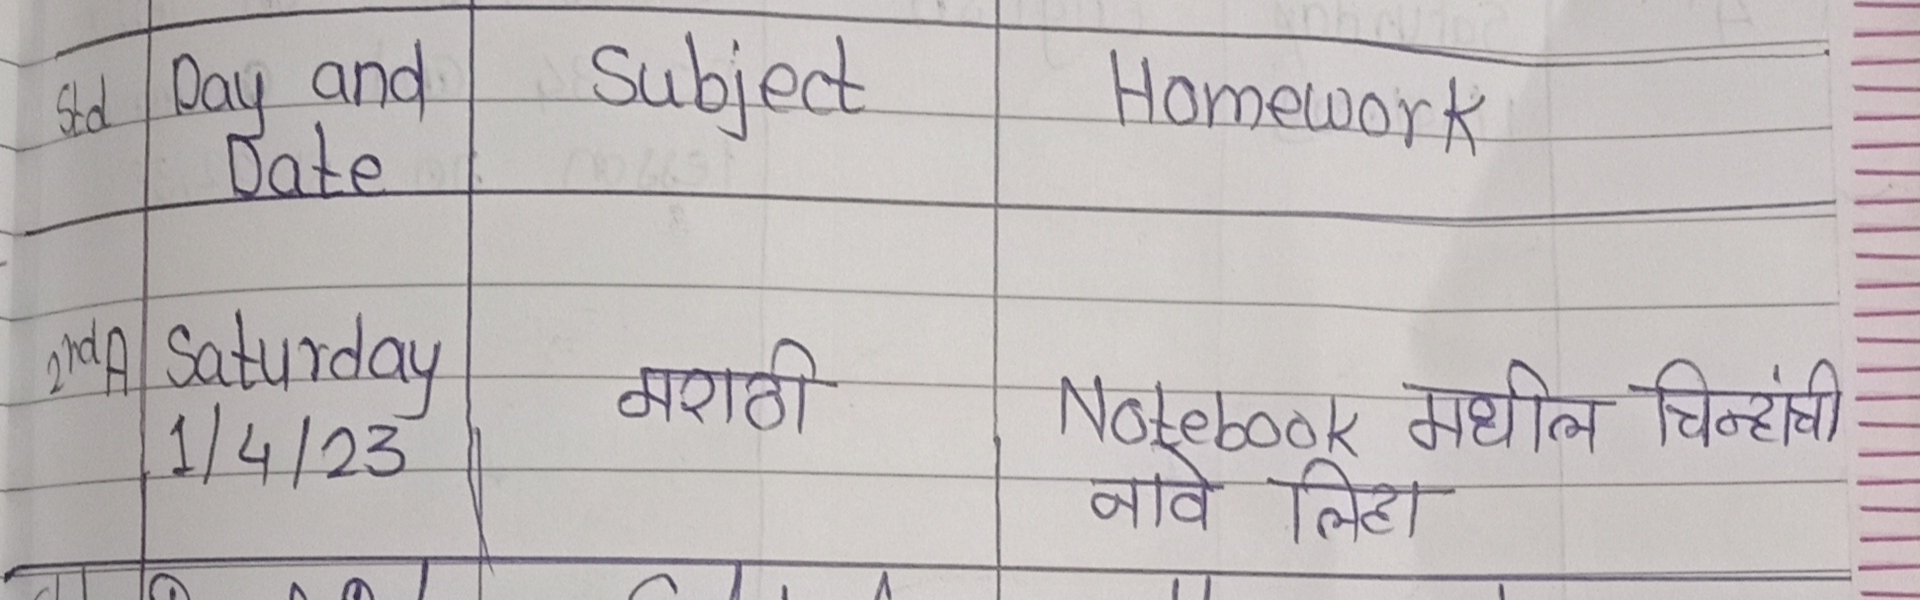 Std Day and Date Subject Homework
2rd A Saturday 1/4/23 मराठी Notebook मधील चिन्हांची
नावे लिहा